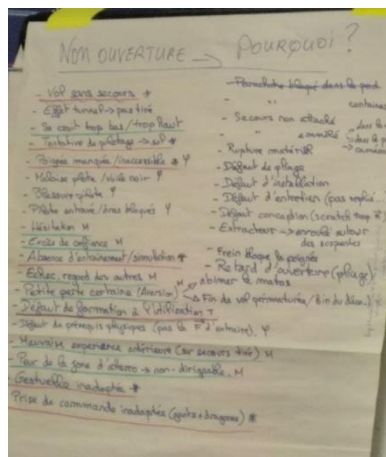 NON OUVERTURE → POURQUOI ?
- Vol sans secours *
- Effet tunnel → pas tiré
- Se croit trop bas / trop haut
- Tentative de pilotage →
- Poignée manquée / inaccessible * Ψ
- Malaise pilote / voile noir Ψ
- Blessure pilote Ψ
- Pilote entravé / bras bloqués Ψ
- Hésitation M
- Excès de confiance M
- Absence d'entraînement / simulation *
- Echec, regard des autres M
- Petite perte certaine (Aversion) M → abimer le matos
→ Fin de vol prématurée
- Défaut de formation à l'utilisation T
- Défaut de prérequis physiques (pas la F d'extraire) Ψ
- Mauvaise expérience antérieure (sur secours tiré) M
- Peur de la zone d'atterro → non-dirigeable M
- Gestuelle inadaptée *
- Prise de commande inadaptée *
- Parachute bloqué dans le pod
- " " container
- Secours non attaché
- " emmêlé
- Rupture matériel
- Défaut de pliage
- Défaut d'installation
- Défaut d'entretien (pas replié
- Défaut conception (scratch trop
- Extracteur → enroulé autour
des suspentes
- Frein bloque la poignée
- Retard d'ouverture (pliage)